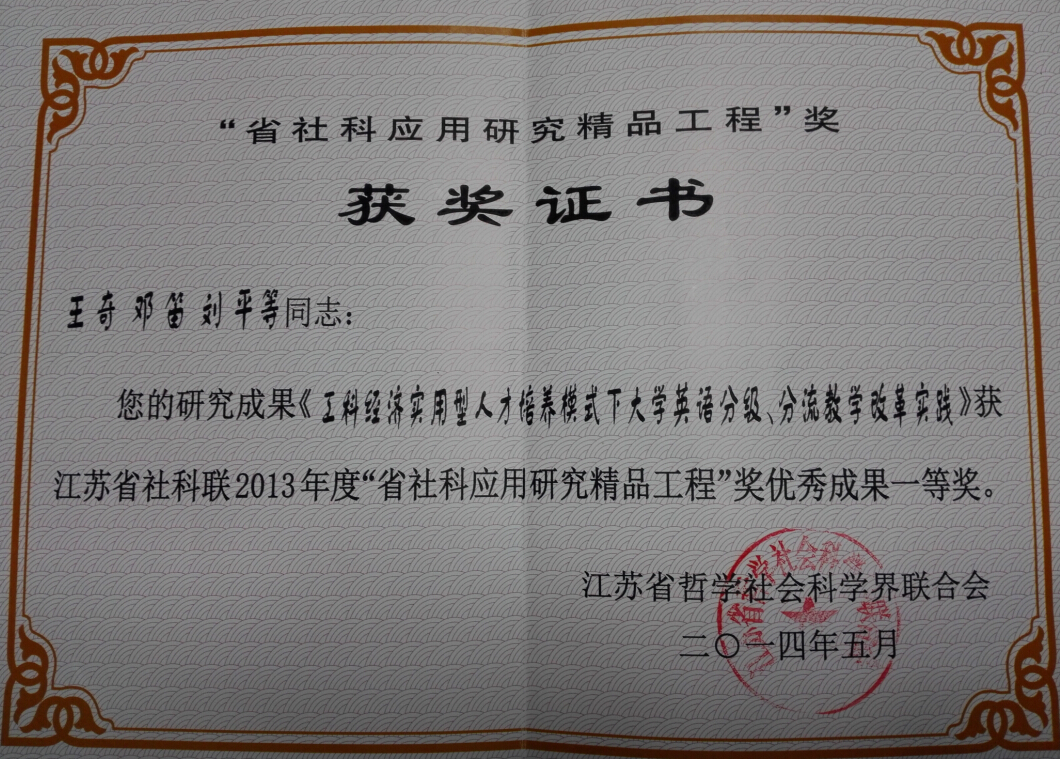 “省社科应用研究精品工程”奖
获奖证书
王奇 邓笛 刘平等同志：
您的研究成果《工科经济实用型人才培养模式下大学英语分级、分流教学改革实践》获
江苏省社科联2013年度“省社科应用研究精品工程”奖优秀成果一等奖。
江苏省哲学社会科学界联合会
二〇一四年五月